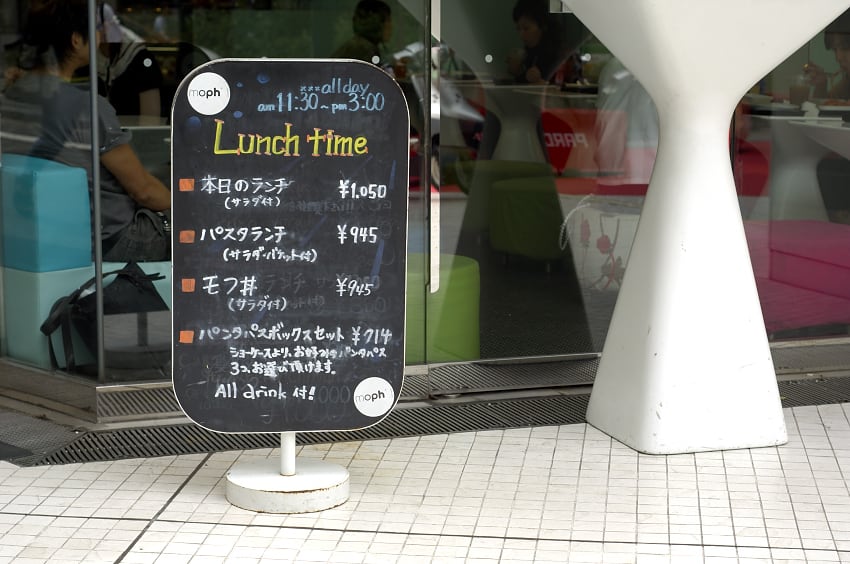 moph
×××all day
am 11:30~pm 3:00
Lunch time
本日のランチ ¥1.050
(サラダ付)
パスタランチ ¥945
(サラダ・バケット付)
モフ丼 ¥945
(サラダ付)
パンタパスボックスセット ¥714
ショーケースより、お好みのパンタパス
3コ、お選び頂けます。
All drink 付!
moph
PARCO